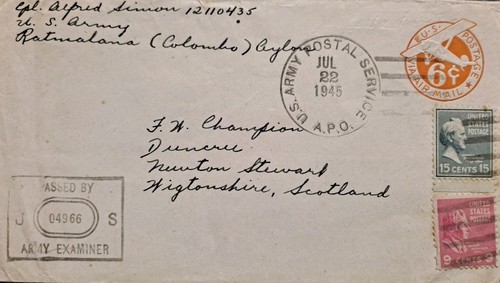 Cpl. Alfred Simon 12110435
U. S. Army
Ratmalana (Colombo) Ceylon
U.S. POSTAGE
6¢
VIA AIR MAIL
U.S. ARMY POSTAL SERVICE
JUL
22
1945
A.P.O.
F. W. Champion
Duncree
Newton Stewart
Wigtonshire, Scotland
UNITED STATES POSTAGE
15 CENTS 15
PASSED BY
J 04966 S
ARMY EXAMINER
UNITED STATES POSTAGE
9